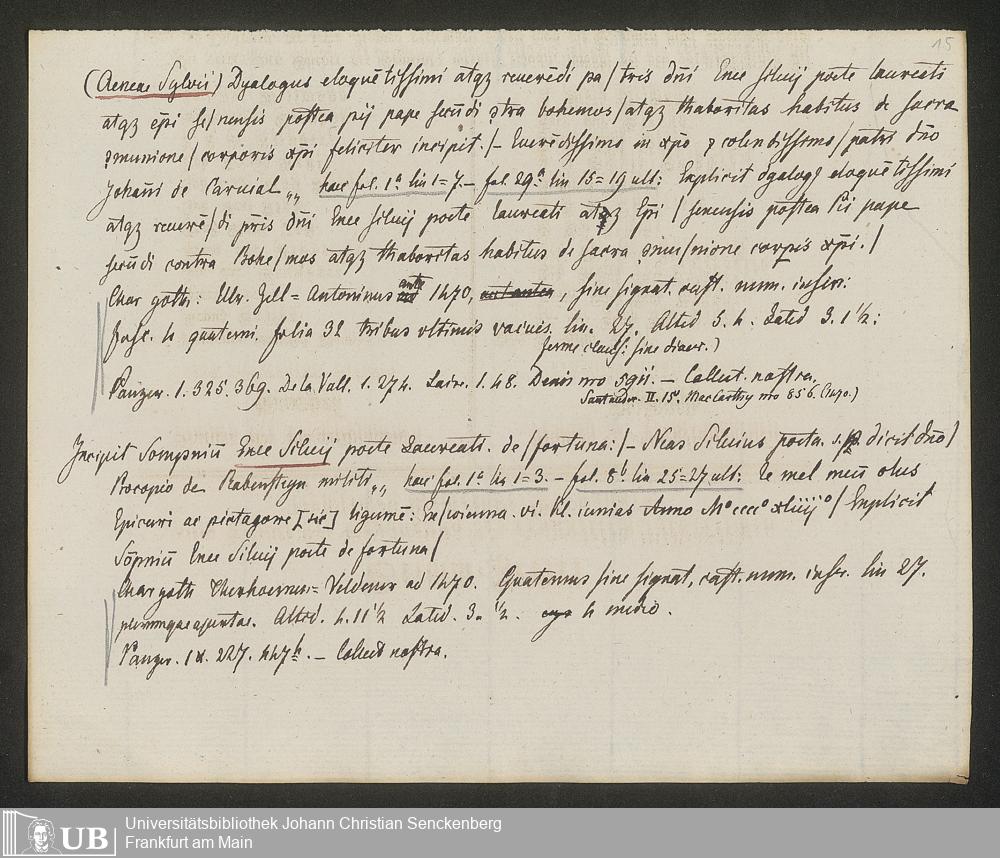 15
(Aeneae Sylvii) Dyalogus eloquētissimi atqꝫ reuerēdi pa/tris dn̄i Enee siluij poete laureati
atqꝫ ep̄i se/nensis postea pij pape secūdi ꝯtra bohemos/atqꝫ thaboritas habitus de sacra
ꝯmunione/corporis xp̄i feliciter incipit./– Reuerēdissimo in xp̄o ⁊ colendissimo/patri dn̄o
Johan̄i de Caruial „ haec fol. 1ª lin 1=7.– fol. 29ª lin 15=19 ult: Explicit dyalogꝰ eloquētissimi
atqꝫ reuerē/di pr̄is dn̄i Enee siluij poete laureati atqꝫ Ep̄i / senensis postea Pii pape
secūdi contra Bohe/mos atqꝫ thaboritas habitus de sacra ꝯmu/nione corpis xp̄i./
Char goth: Ulr. Zell = Antoninus ante 1470, , sine signat. cust. num. inser:
fasc. 4 quaterni. folia 32 tribus ultimis vacuis. lin. 27. Altid 5. 4. Latid 3. 1½:
ferme claus: sine diaer.)
Panzer. 1. 325. 369. De la Vall. 1. 274. Laire. 1. 48. Denis nro 5911. – Collect. nostra.
Santander. II. 15. MacCarthy nro 856. (1470.)
Incipit Sompniū Enee Siluij poete Laureati. de/fortuna:/– Neas Siluius poeta. s. p. dicit dn̄o/
Procopio de Rabensteyn militi „ haec fol. 1ª lin 1=3. – fol. 8ᵇ lin 25=27 ult: te mel meū olus
Epicuri ac pictagore [sic] ligumē: Ex/wienna. vi. kl. iunias Anno Mº ccccº xliiijº/ Explicit
Sōpniū Enee Siluij poete de fortuna/
Char goth Therhoernen = Veldener ad 1470. Quaternus sine signat. cust. num. inscr. lin 27.
plerumque aequatae. Altid. 4. 11½ Latid. 3. ½. 4 medio.
Panzer. IX. 227. 447ᵇ. – Collect nostra.
UB
Universitätsbibliothek Johann Christian Senckenberg
Frankfurt am Main